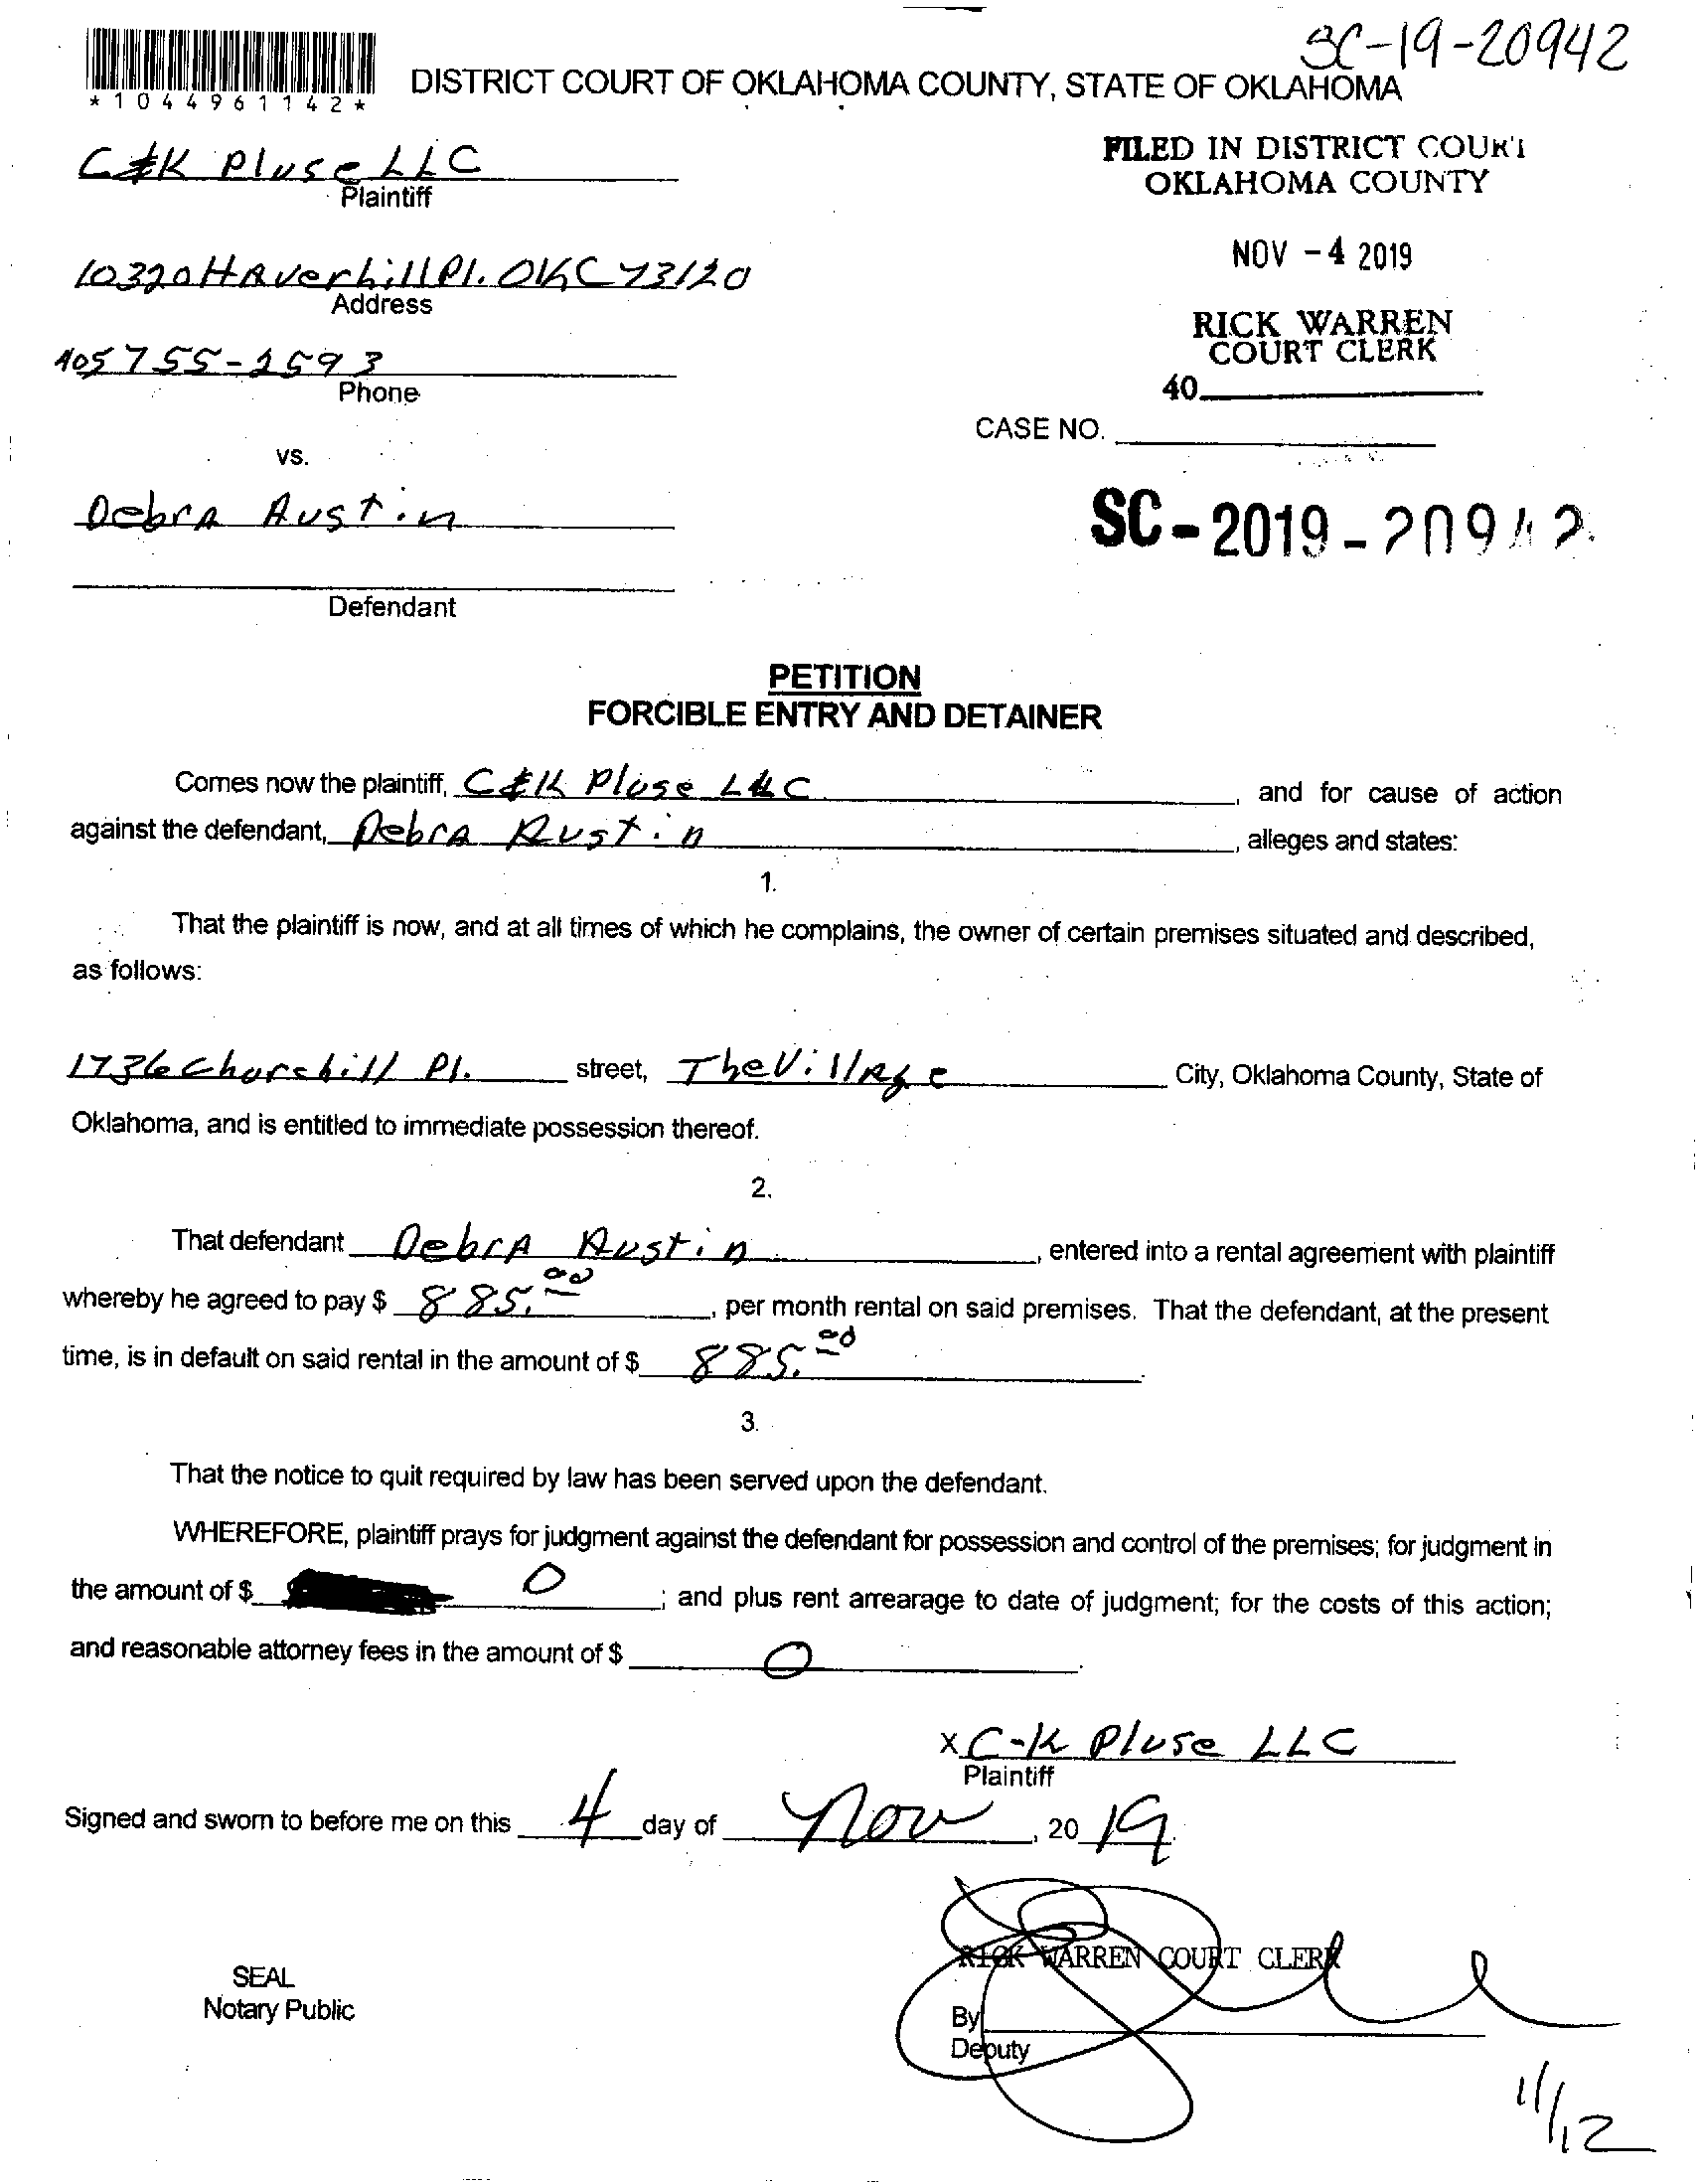 SC-19-20942
*1044961142*
DISTRICT COURT OF OKLAHOMA COUNTY, STATE OF OKLAHOMA
C&K Pluse LLC
Plaintiff
FILED IN DISTRICT COURT
OKLAHOMA COUNTY
NOV -4 2019
10320 Haverhill Pl. OKC 73120
Address
RICK WARREN
COURT CLERK
40
405 755-2593
Phone
CASE NO.
vs.
Debra Austin
SC-2019-20942
Defendant
PETITION
FORCIBLE ENTRY AND DETAINER
Comes now the plaintiff, C&K Pluse LLC, and for cause of action
against the defendant, Debra Austin, alleges and states:
1.
That the plaintiff is now, and at all times of which he complains, the owner of certain premises situated and described,
as follows:
1736 Churchill Pl. street, The Village City, Oklahoma County, State of
Oklahoma, and is entitled to immediate possession thereof.
2.
That defendant Debra Austin, entered into a rental agreement with plaintiff
whereby he agreed to pay $ 885.00, per month rental on said premises. That the defendant, at the present
time, is in default on said rental in the amount of $ 885.00.
3.
That the notice to quit required by law has been served upon the defendant.
WHEREFORE, plaintiff prays for judgment against the defendant for possession and control of the premises; for judgment in
the amount of $ 0; and plus rent arrearage to date of judgment; for the costs of this action;
and reasonable attorney fees in the amount of $ 0.
X C-K Pluse LLC
Plaintiff
Signed and sworn to before me on this 4 day of Nov, 2019.
RICK WARREN COURT CLERK
SEAL
Notary Public
By
Deputy
11/12